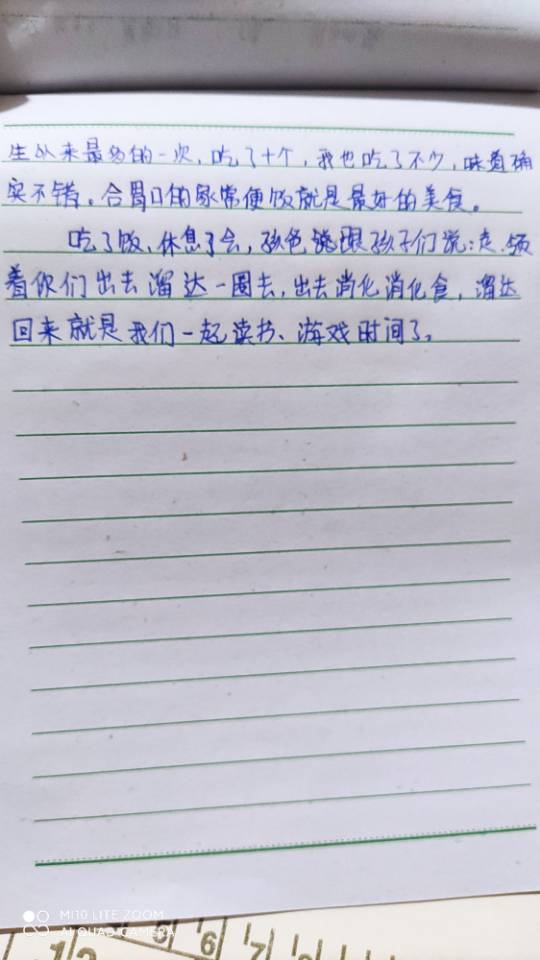 生以来最多的一次,吃了十个,我也吃了不少,味道确
实不错。合胃口的家常便饭就是最好的美食。
吃了饭,休息了会,孩爸跟孩子们说:走,领
着你们出去溜达一圈去,出去消化消化食,溜达
回来就是我们一起读书、游戏时间了。
MI 10 LITE ZOOM
AI QUAD CAMERA
5 6 7
12